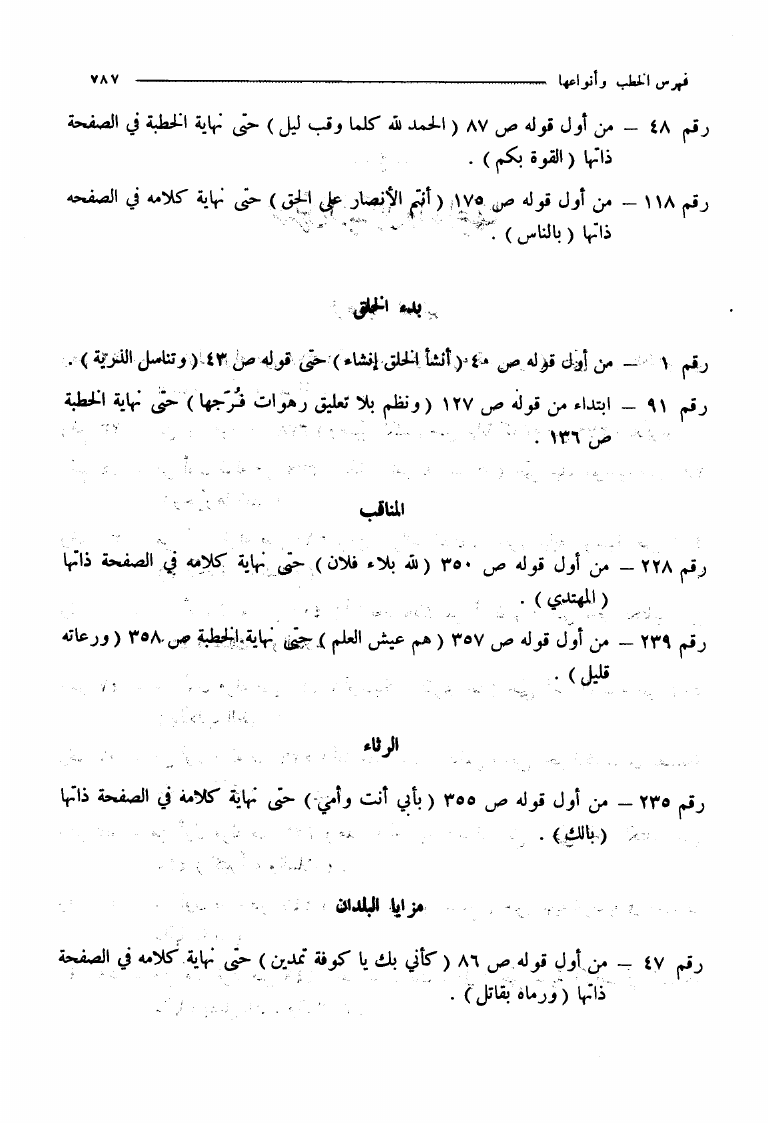 فهرس الخطب وأنواعها ٧٨٧
رقم ٤٨ — من أول قوله ص ٨٧ ( الحمد لله كلما وقب ليل ) حتى نهاية الخطبة في الصفحة
ذاتها ( القوة بكم ) .
رقم ١١٨ — من أول قوله ص ١٧٥ ( أنتم الأنصار على الحق ) حتى نهاية كلامه في الصفحه
ذاتها ( بالناس ) .
بدء الخلق
رقم ١ — من أول قوله ص ٤٠ ( أنشأ الخلق إنشاء ) حتى قوله ص ٤٣ ( وتناسل الذريّة ) .
رقم ٩١ — ابتداء من قوله ص ١٢٧ ( ونظم بلا تعليق رهوات فُرَجها ) حتى نهاية الخطبة
ص ١٣٦ .
المناقب
رقم ٢٢٨ — من أول قوله ص ٣٥٠ ( لله بلاء فلان ) حتى نهاية كلامه في الصفحة ذاتها
( المهتدي ) .
رقم ٢٣٩ — من أول قوله ص ٣٥٧ ( هم عيش العلم ) حتى نهاية الخطبة ص ٣٥٨ ( ورعاته
قليل ) .
الرثاء
رقم ٢٣٥ — من أول قوله ص ٣٥٥ ( بأبي أنت وأمي ) حتى نهاية كلامه في الصفحة ذاتها
( بالك ) .
مزايا البلدان
رقم ٤٧ — من أول قوله ص ٨٦ ( كأني بك يا كوفة تمدين ) حتى نهاية كلامه في الصفحة
ذاتها ( ورماه بقاتل ) .